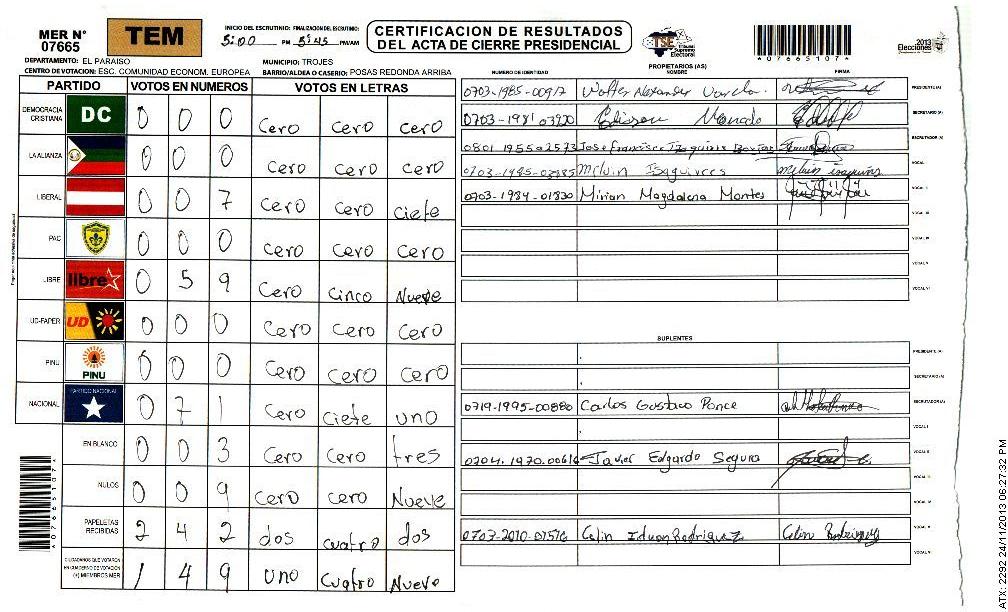 MER N° 07665
TEM
INICIO DEL ESCRUTINIO: FINALIZACION DEL ESCRUTINIO:
5:00 PM 5:45 PM/AM
CERTIFICACION DE RESULTADOS
DEL ACTA DE CIERRE PRESIDENCIAL
TSE Tribunal Supremo Electoral
*07665107*
2013 Elecciones
DEPARTAMENTO: EL PARAISO
MUNICIPIO: TROJES
CENTRO DE VOTACION: ESC. COMUNIDAD ECONOM. EUROPEA
BARRIO/ALDEA O CASERIO: POSAS REDONDA ARRIBA
PARTIDO VOTOS EN NUMEROS VOTOS EN LETRAS
DEMOCRACIA CRISTIANA DC 0 0 0 Cero Cero Cero
LA ALIANZA 0 0 0 Cero Cero Cero
LIBERAL 0 0 7 Cero Cero Ciete
PAC 0 0 0 Cero Cero Cero
LIBRE libre 0 5 9 Cero Cinco Nueve
UD-FAPER UD 0 0 0 Cero Cero Cero
PINU PINU 0 0 0 Cero Cero Cero
NACIONAL PARTIDO NACIONAL 0 7 1 Cero Ciete uno
EN BLANCO 0 0 3 Cero Cero tres
NULOS 0 0 9 Cero Cero Nueve
PAPELETAS RECIBIDAS 2 4 2 dos cuatro dos
CIUDADANOS QUE VOTARON EN CUADERNO DE VOTACION (+) MIEMBROS MER 1 4 9 uno Cuatro Nueve
*07665107*
PROPIETARIOS (AS)
NUMERO DE IDENTIDAD NOMBRE FIRMA
0703-1985-00917 Walter Alexander PRESIDENTE (A)
0703-1981 03920 Edizon SECRETARIO (A)
0801 1955 02573 Jose Francisco Izaguirre ESCRUTADOR (A)
0703-1995-03985 Melvin Isaguirres VOCAL I
0703-1984-01830 Mirian Magdalena Montes VOCAL II
VOCAL III
VOCAL IV
VOCAL V
VOCAL VI
SUPLENTES
PRESIDENTE (A)
SECRETARIO (A)
0719-1995-00880 Carlos Gustavo Ponce ESCRUTADOR(A)
VOCAL I
0704-1970-00616 Javier Edgardo Segura VOCAL II
VOCAL III
VOCAL IV
0703-2010-01516 Celin Iduan Rodriguez Celin Rodriguez VOCAL V
VOCAL VI
ATX: 2292 24/11/2013 06:27:32 PM